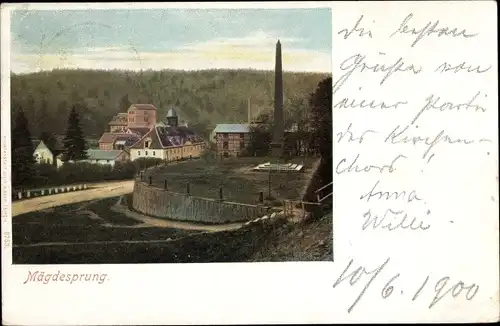 Mägdesprung.
die besten
Grüße von
einer Partie
des Kirchen-
chors!
Anna
Willi
10/6. 1900